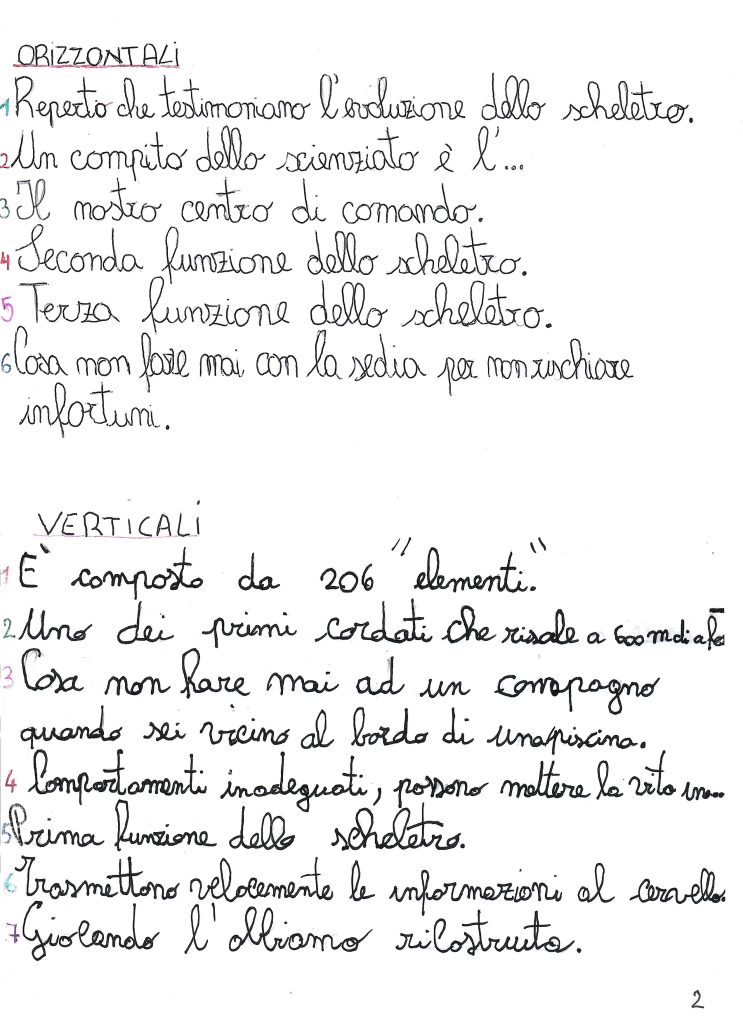 ORIZZONTALI
1 Reperto che testimoniano l'evoluzione dello scheletro.
2 Un compito dello scienziato è l'...
3 Il nostro centro di comando.
4 Seconda funzione dello scheletro.
5 Terza funzione dello scheletro.
6 Cosa non fare mai con la sedia per non rischiare
infortuni.
VERTICALI
1 E' composto da 206 "elementi."
2 Uno dei primi cordati che risale a 600 m di a fa
3 Cosa non fare mai ad un compagno
quando sei vicino al bordo di una piscina.
4 Comportamenti inadeguati, possono mettere la vita in...
5 Prima funzione dello scheletro.
6 Trasmettono velocemente le informazioni al cervello.
7 Giocando l'abbiamo ricostruita.
2